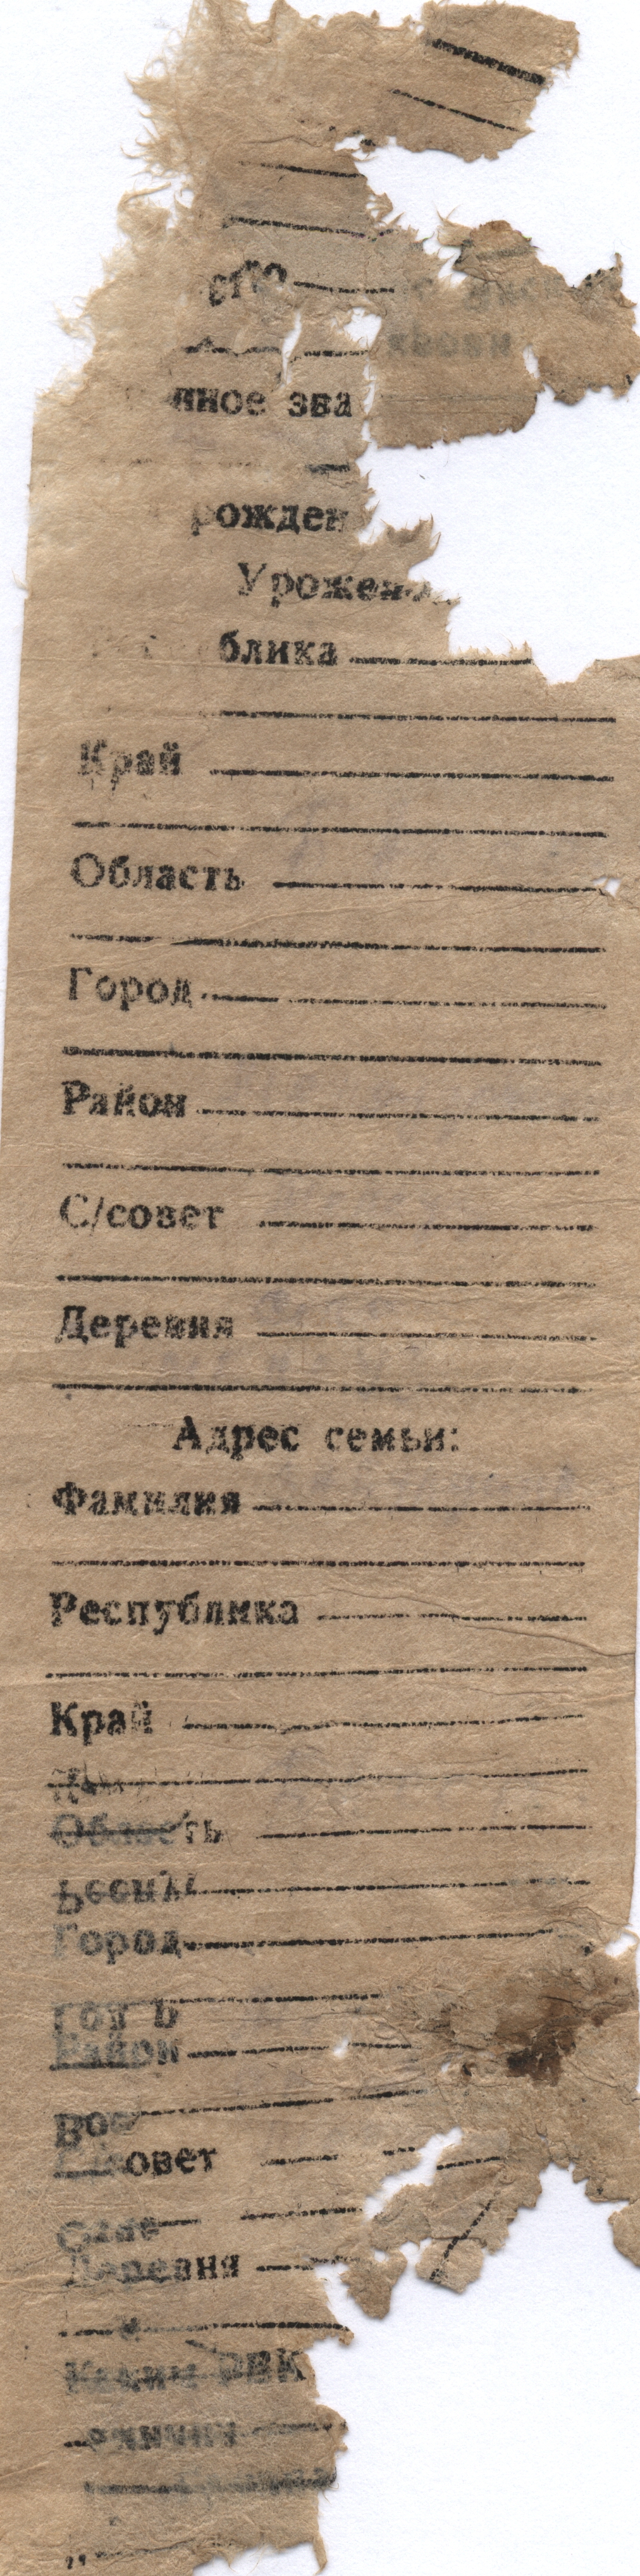 ство
нное зва
рожден
Урожен
блика
Край
Область
Город
Район
С/совет
Деревня
Адрес семьи:
Фамилия
Республика
Край
Область
Город
Район
совет
Деревня
РВК